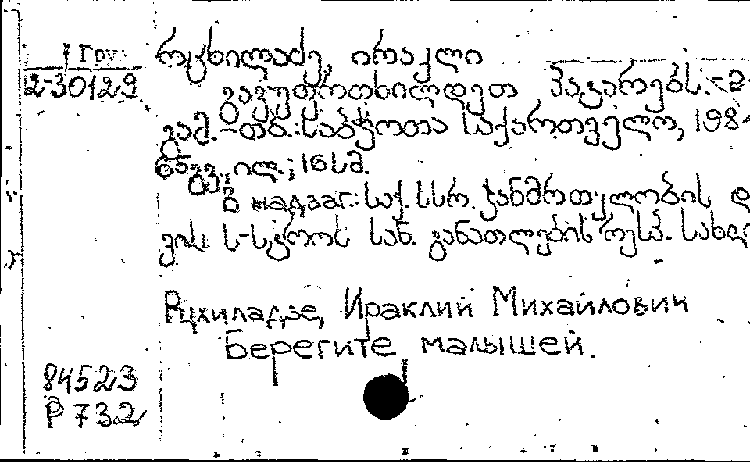 7 Гру.
2-30129
რცხილაძე, ირაკლი
გავუფრთხილდეთ პატარებს. - 2
გამ. - თბ.: საბჭოთა საქართველო, 198
გვ., ილ.; 16 სმ.
В надзаг: საქ. სსრ. ჯანმრთელობის დ
ვის ს-სტროს სან. განათლების რესპ. სახლი
Рцхиладзе, Ираклий Михайлович
Берегите малышей.
84523
Р 732